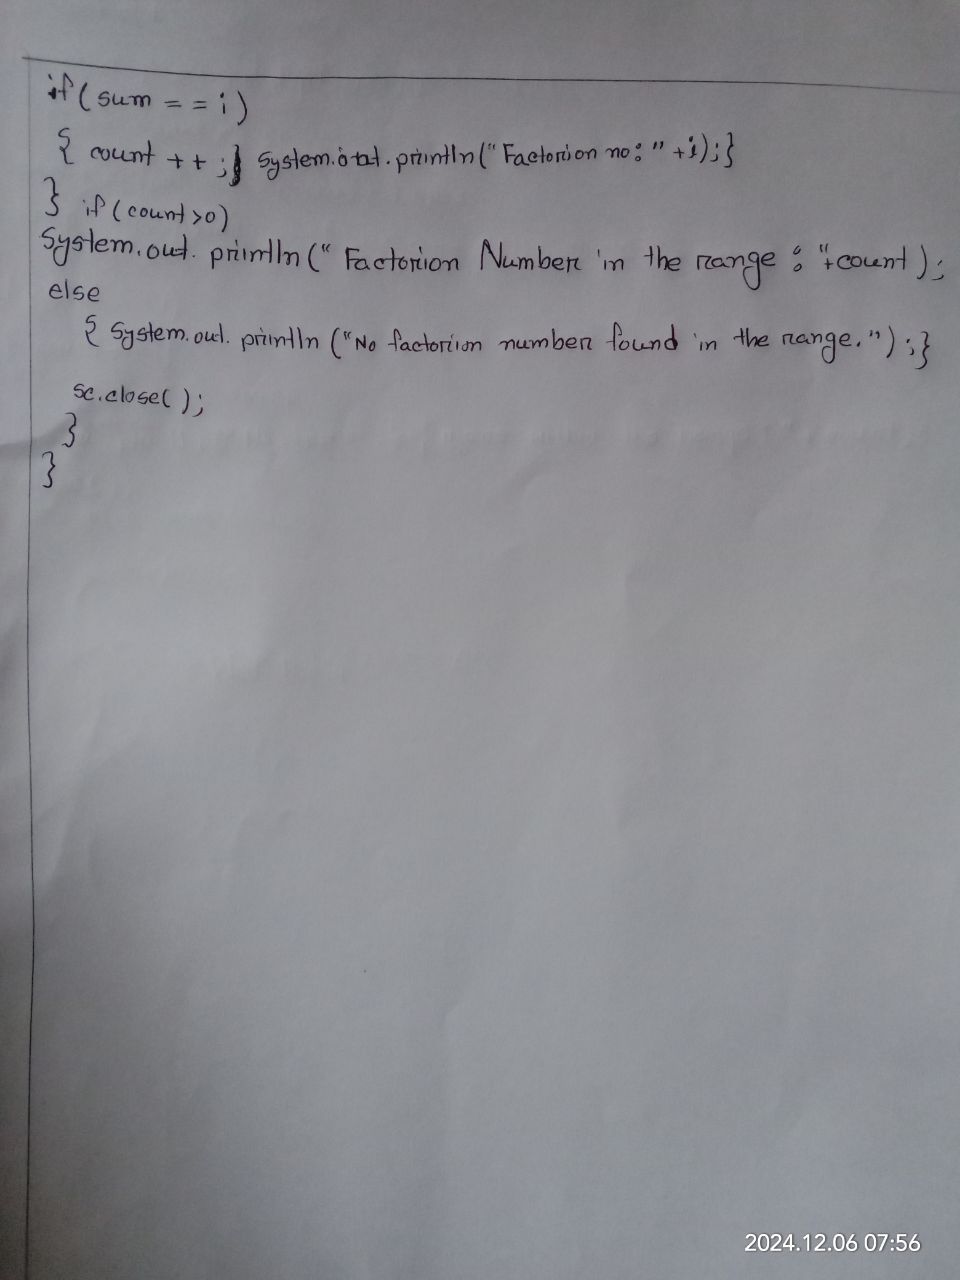 if(sum == i)
{ count ++ ; System.out.println("Factorion no: " +i);}
} if (count>0)
System.out.println(" Factorion Number in the range : "+count);
else
{ System.out.println("No factorion number found in the range.");}
sc.close();
}
}
2024.12.06 07:56